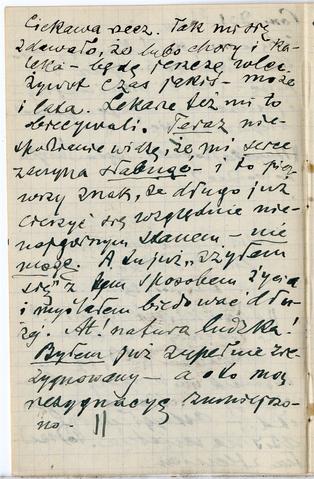 Ciekawa rzecz. Tak mi się
zdawało, że lubo chory i ka-
leka – będę jeszcze wlec
żywot czas jakiś – może
i lata. Lekarze też mi to
obiecywali. Teraz nie-
spodzianie widzę, że mi serce
zaczyna słabnąć – i to pier-
wszy znak, że długo już
cieszyć się względnie nie-
najgorszym stanem – nie
mogę. A tu już „zżyłem
się" z tym sposobem życia
i myślałem biedować dłu-
żej. At! natura ludzka!
Byłem już zupełnie zre-
zygnowany – a oto moją
rezygnację zmniejszo-
no –